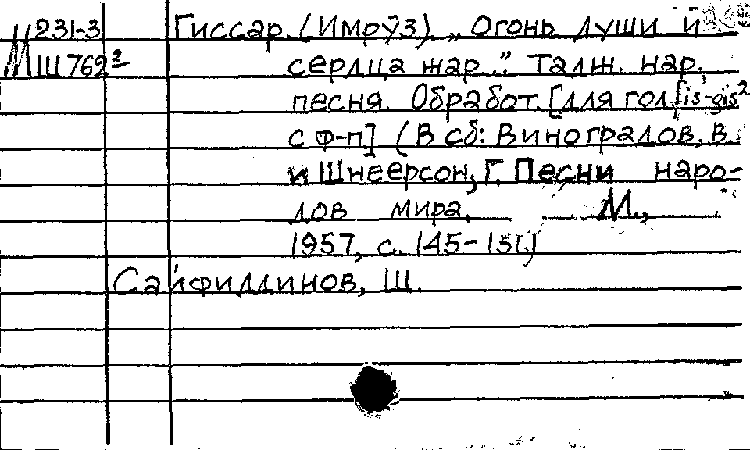 М 231-3 Гиссар. (Имрӯз). „Огонь души и
Ш 762² сердца жар..." Тадж. нар.
песня. Обработ. [для гол. fis-gis²
с ф-п] (В сб: Виноградов, В.
и Шнеерсон, Г. Песни наро-
дов мира. М.,
1957, с. 145-151.)
Сайфиддинов, Ш.